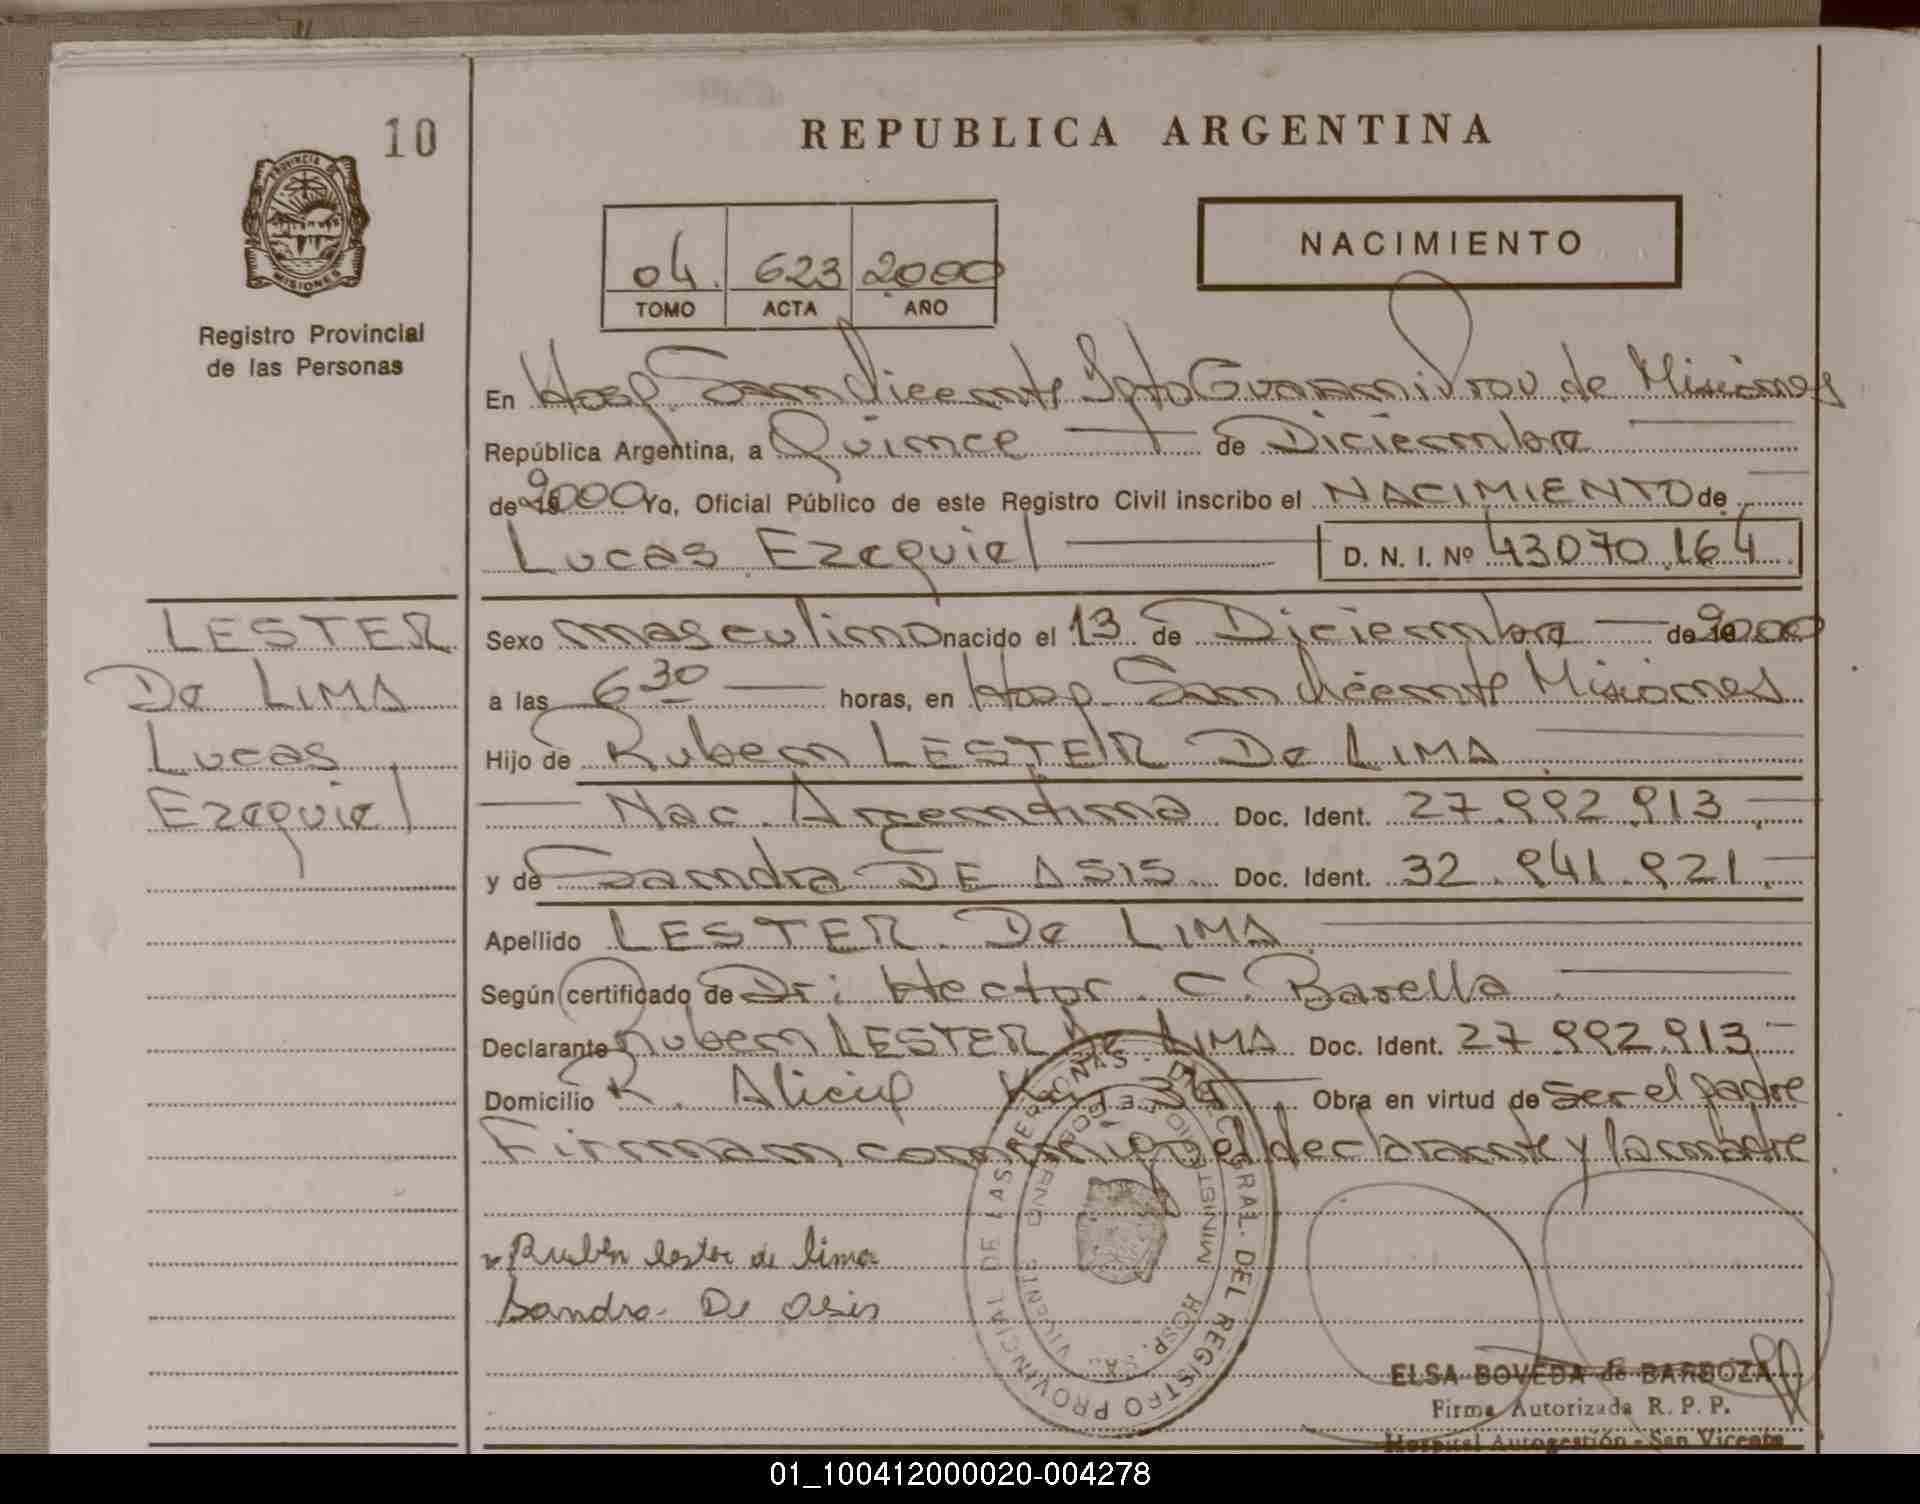 10
PROVINCIA DE
MISIONES
Registro Provincial
de las Personas
REPUBLICA ARGENTINA
04 623 2000
TOMO ACTA AÑO
NACIMIENTO
En Hosp. San Vicente Dpto Guarani Prov. de Misiones
República Argentina, a Quince de Diciembre
de 2000 Yo, Oficial Público de este Registro Civil inscribo el NACIMIENTO de
Lucas Ezequiel D. N. I. Nº 43070.164
LESTER
De LIMA
Lucas
Ezequiel
Sexo masculino nacido el 13 de Diciembre de 2000
a las 6 30 horas, en Hosp. San Vicente Misiones
Hijo de Ruben LESTER De LIMA
Nac. Argentina Doc. Ident. 27.992.913
y de Sandra DE ASIS Doc. Ident. 32.941.921
Apellido LESTER De LIMA
Según certificado de Dr: Hector C. Barella
Declarante Ruben LESTER De LIMA Doc. Ident. 27.992.913
Domicilio R. Alicia Km 34 Obra en virtud de ser el padre
Firman conmigo el declarante y la madre
Rubén lester de lima
Sandra De Asis
REGISTRO PROVINCIAL DE LAS PERSONAS
MINISTERIO DE GOBIERNO
HOSP. SAN VICENTE
ELSA BOVEDA de BARBOZA
Firma Autorizada R. P. P.
Hospital Autogestión - San Vicente
01_100412000020-004278